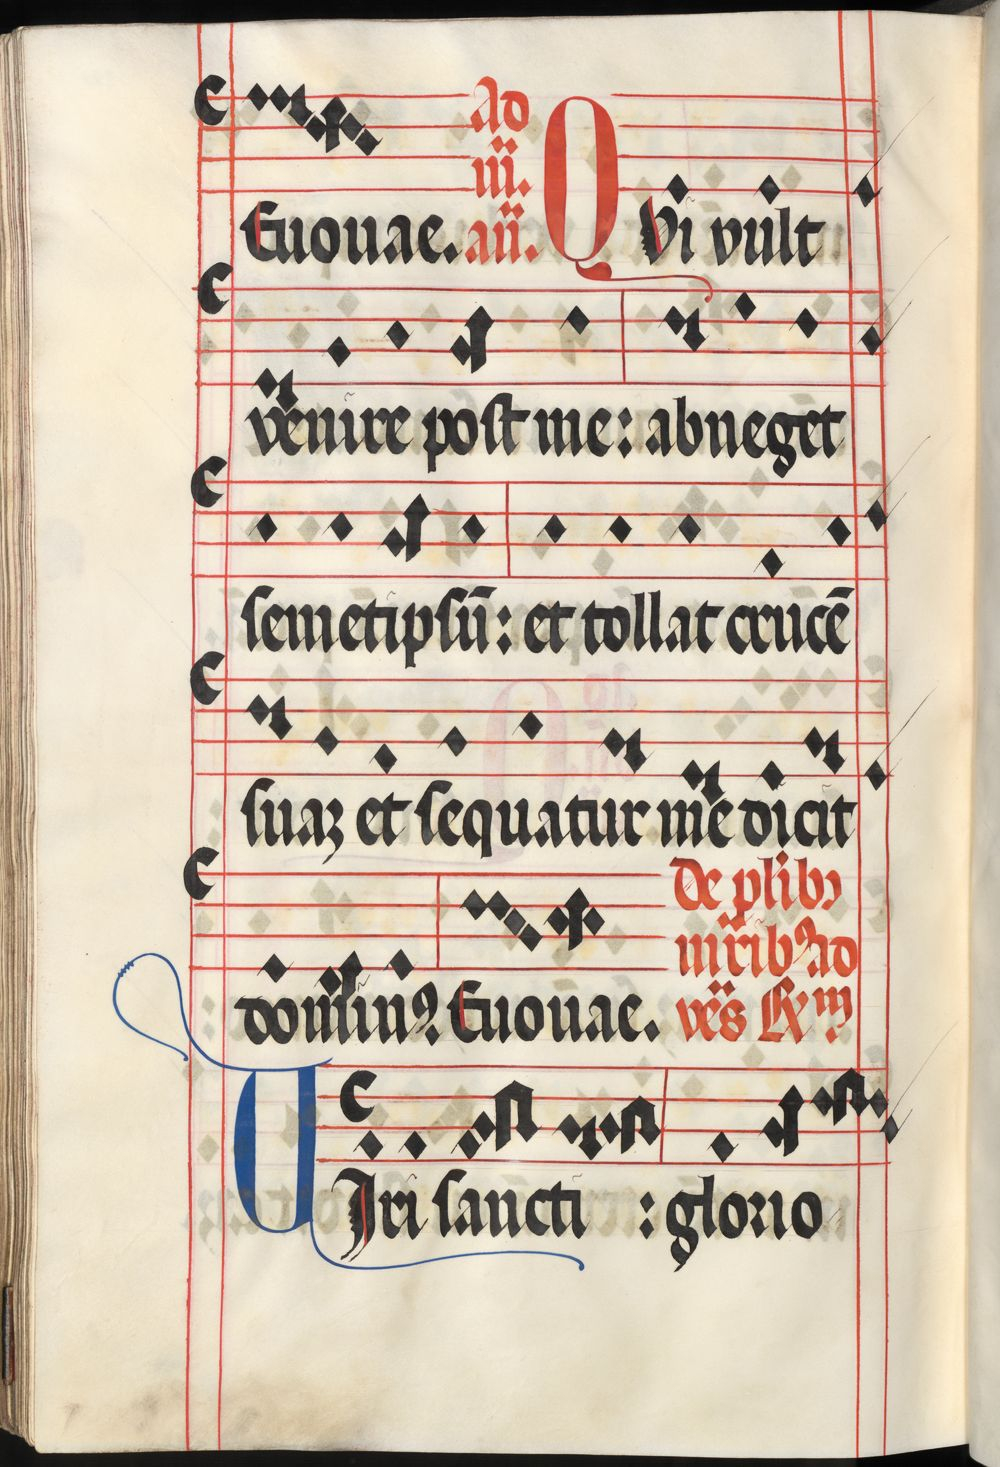 Euouae. Ad iii. añ. QVi vult
venire post me: abneget
semetipsū: et tollat crucē
suaꝫ et sequatur me dicit
dominꝰ Euouae. De plibꝫ
mr̄ibꝰ ad
ves̄ R̄m
VIri sancti : glorio